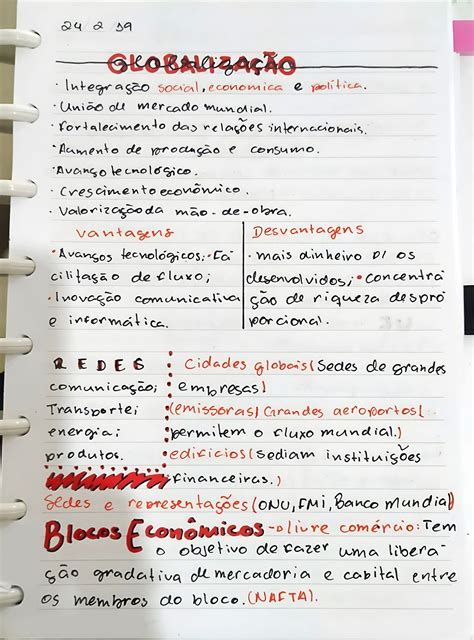 24 2 19
GLOBALIZAÇÃO
· Integração social, economica e política.
· União de mercado mundial.
· Fortalecimento das relações internacionais.
· Aumento de produção e consumo.
· Avanço tecnológico.
· Crescimento econômico.
· Valorização da mão-de-obra.
Vantagens
· Avanços tecnológicos; Fa
cilitação de fluxo;
· Inovação comunicativa
e informática.
Desvantagens
· mais dinheiro p/ os
desenvolvidos; · concentra
ção de riqueza despro
porcional.
REDES
comunicação;
Transporte;
energia;
produtos.
Cidades globais (Sedes de grandes
empresas)
(emissoras) Grandes aeroportos (
permitem o fluxo mundial.)
edifícios (sediam instituições
financeiras.)
Sedes e representações (ONU, FMI, Banco Mundial)
Blocos Econômicos - livre comércio: Tem
o objetivo de fazer uma libera-
ção gradativa de mercadoria e capital entre
os membros do bloco. (NAFTA).